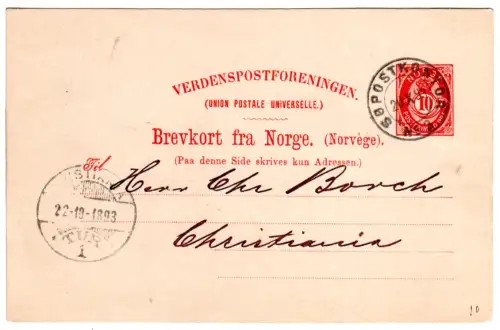 VERDENSPOSTFORENINGEN.
(UNION POSTALE UNIVERSELLE.)
Brevkort fra Norge. (Norvège).
(Paa denne Side skrives kun Adressen.)
Til
Herr Chr Borch
Christiania
SØPOSTKONTOR
10
22-10-1893
TUR
1
10